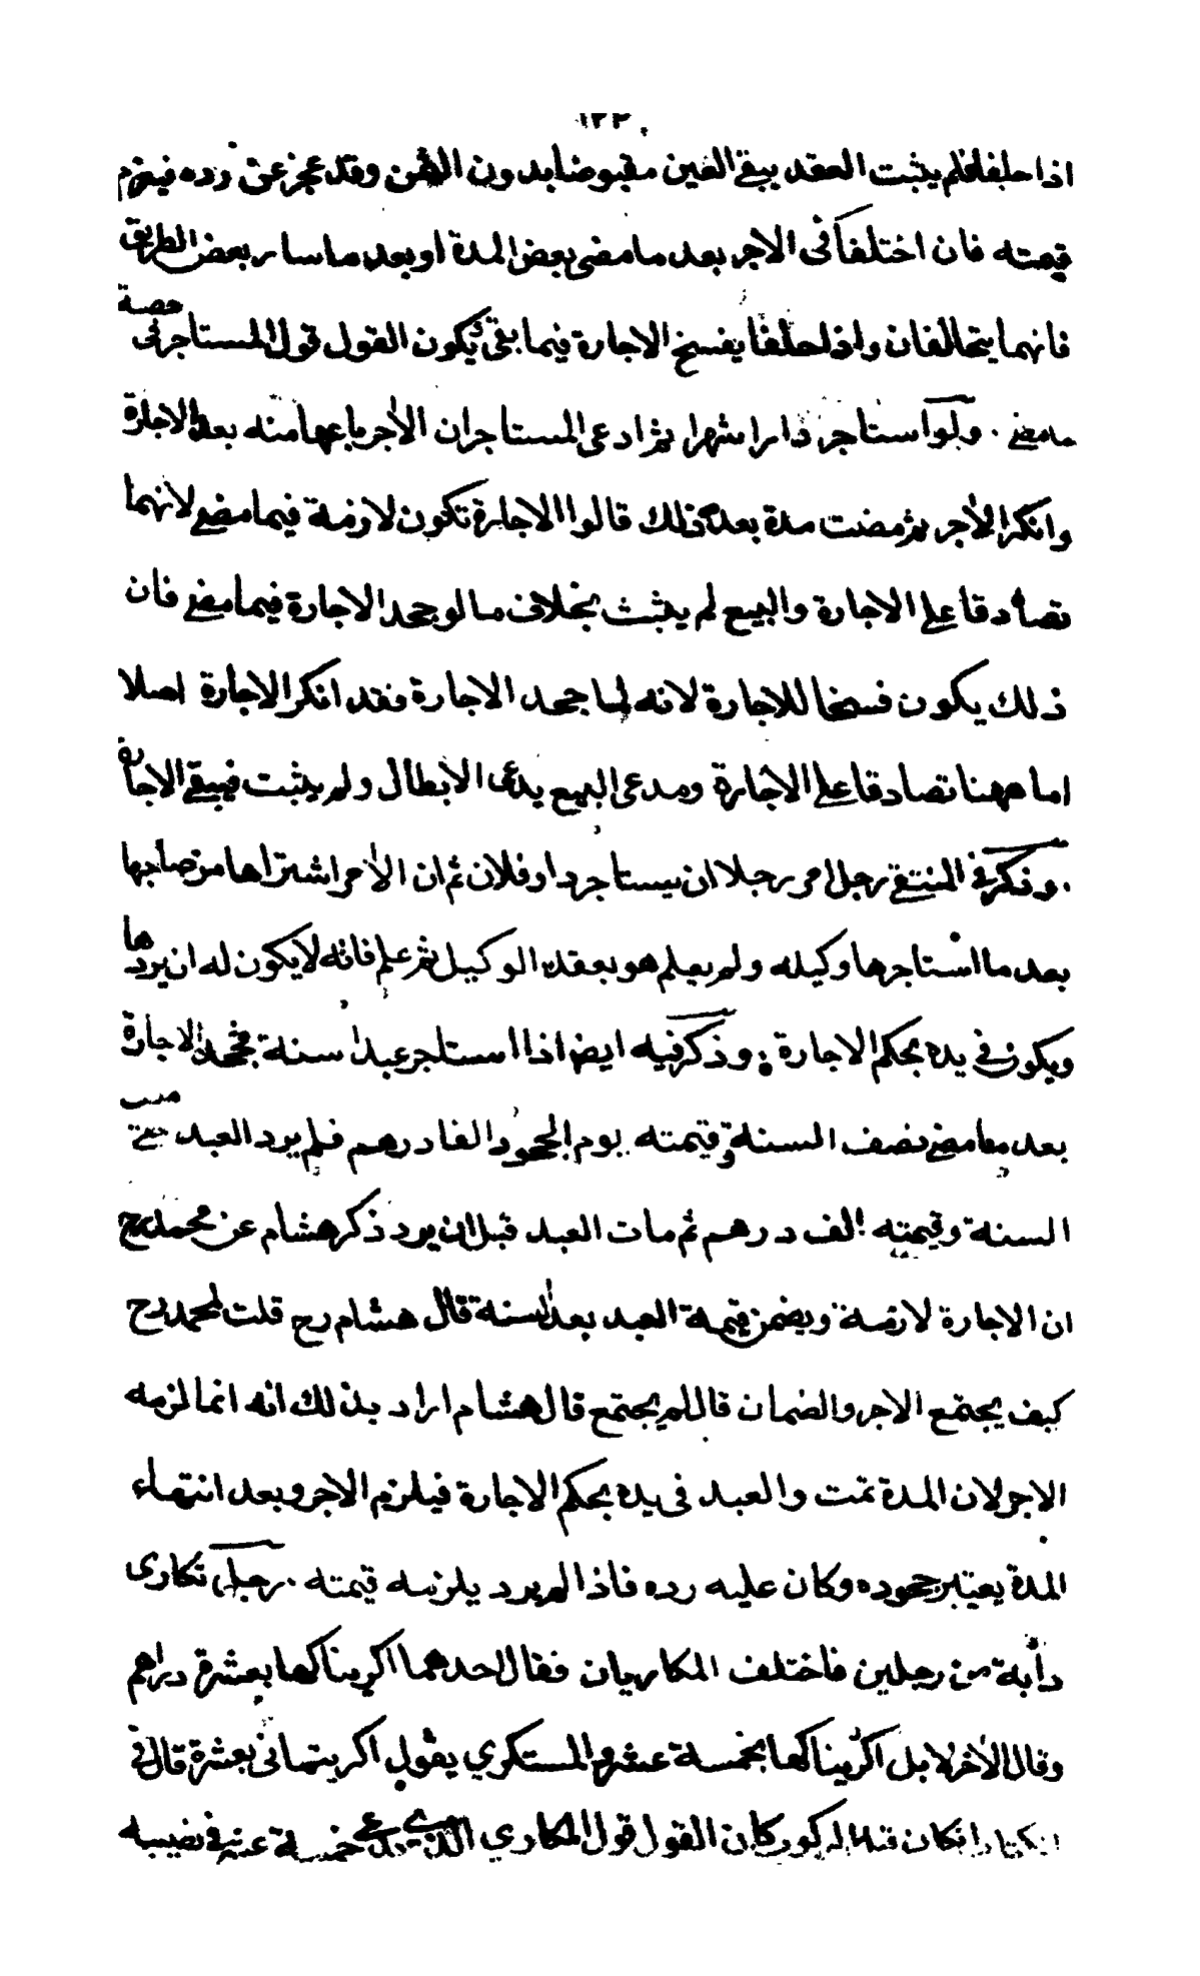 ١٣٣
اذا حلفا فلم يثبت العقد يبقى العين مقبوضا بدون الثمن وقد عجز عن رده فيغرم
قيمته فان اختلفا في الاجر بعد ما مضى بعض المدة او بعد ما سار بعض الطريق
فانهما يتحالفان واذا حلفا يفسخ الاجارة فيما بقى ويكون القول قول المستاجر في حصة
ما مضى . ولو استاجر دارا شهرا ثم ادعى المستاجر ان الآجر باعها منه بعد الاجارة
وانكر الآجر ثم مضت مدة بعد ذلك قالوا الاجارة تكون لازمة فيما مضى لانهما
تصادقا على الاجارة والبيع لم يثبت بخلاف ما لو جحد الاجارة فيما مضى فان
ذلك يكون فسخا للاجارة لانه لما جحد الاجارة فقد انكر الاجارة اصلا
اما ههنا تصادقا على الاجارة ومدعى البيع يدعى الابطال ولم يثبت فيبقى الاجارة
. وذكر في المنتقى رجل امر رجلا ان يستاجر دار فلان ثم ان الآمر اشتراها من صاحبها
بعد ما استاجرها وكيله ولم يعلم هو بعقد الوكيل ثم علم فانه لا يكون له ان يردها
ويكون في يده بحكم الاجارة . وذكر فيه ايضا اذا استاجر عبدا سنة فجحد الاجارة
بعد ما مضى نصف السنة وقيمته يوم الجحود الفا درهم فلم يرد العبد حتى مضت
السنة وقيمته الف درهم ثم مات العبد قبل ان يرد ذكر هشام عن محمد رح
ان الاجارة لازمة ويضمن قيمة العبد بعد السنة قال هشام رح قلت لمحمد رح
كيف يجتمع الاجر والضمان قال لم يجتمع قال هشام اراد بذلك انه انما لزمه
الاجر لان المدة تمت والعبد في يده بحكم الاجارة فيلزم الاجر وبعد انتهاء
المدة يعتبر جحوده وكان عليه رده فاذا لم يرد يلزمه قيمته . رجل تكارى
دابة من رجلين فاختلف المكاريان فقال احدهما اكريناكها بعشرة دراهم
وقال الآخر لا بل اكريناكها بخمسة عشر والمستكري يقول اكريتماني بعشرة قال في
الكتاب ان كان قبل الركوب كان القول قول المكاري الذي يدعي خمسة عشر في نصيبه